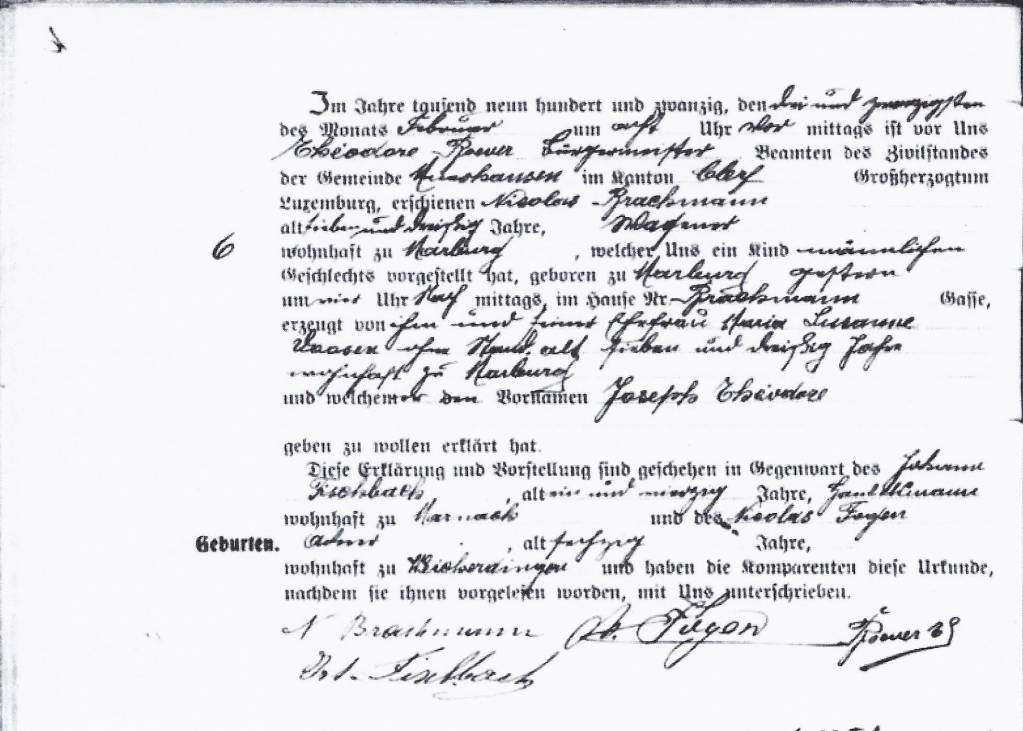 Im Jahre tausend neun hundert und zwanzig, den drei und zwanzigsten
des Monats Februar um acht Uhr Vor mittags ist vor Uns
Théodore Bürgermeister Beamten des Zivilstandes
der Gemeinde Munshausen im Kanton Clerf Großherzogtum
Luxemburg, erschienen Nicolas Brachmann
alt sieben und dreißig Jahre, Wagener
6
wohnhaft zu Marburg, welcher Uns ein Kind männlichen
Geschlechts vorgestellt hat, geboren zu Marburg gestern
um vier Uhr Nach mittags, im Hause Nr. Brachmann Gasse,
erzeugt von ihm und seiner Ehefrau Maria Susanne
ohne Stand, alt sieben und dreißig Jahre
wohnhaft zu Marburg
und welchem er den Vornamen Joseph Théodore
geben zu wollen erklärt hat.
Diese Erklärung und Vorstellung sind geschehen in Gegenwart des Johann
Fischbach, alt ein und vierzig Jahre,
wohnhaft zu Marnach und des Nicolas
Geburten.
Ackerer, alt sechzig Jahre,
wohnhaft zu Weicherdingen und haben die Komparenten diese Urkunde,
nachdem sie ihnen vorgelesen worden, mit Uns unterschrieben.
N Brachmann
Fischbach